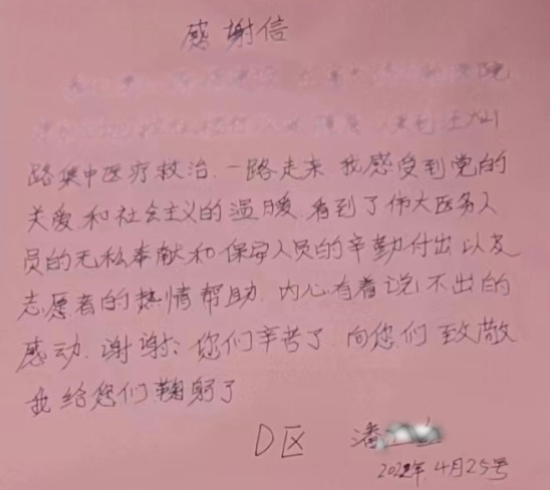 感谢信
路集中医疗救治.一路走来 我感受到党的
关爱 和社会主义的温暖 看到了伟大医务人
员的无私奉献和保安人员的辛勤付出 以及
志愿者的热情帮助.内心有着说不出的
感动.谢谢:您们辛苦了.向您们致敬
我给您们鞠躬了
D区 潘
2022年4月25号